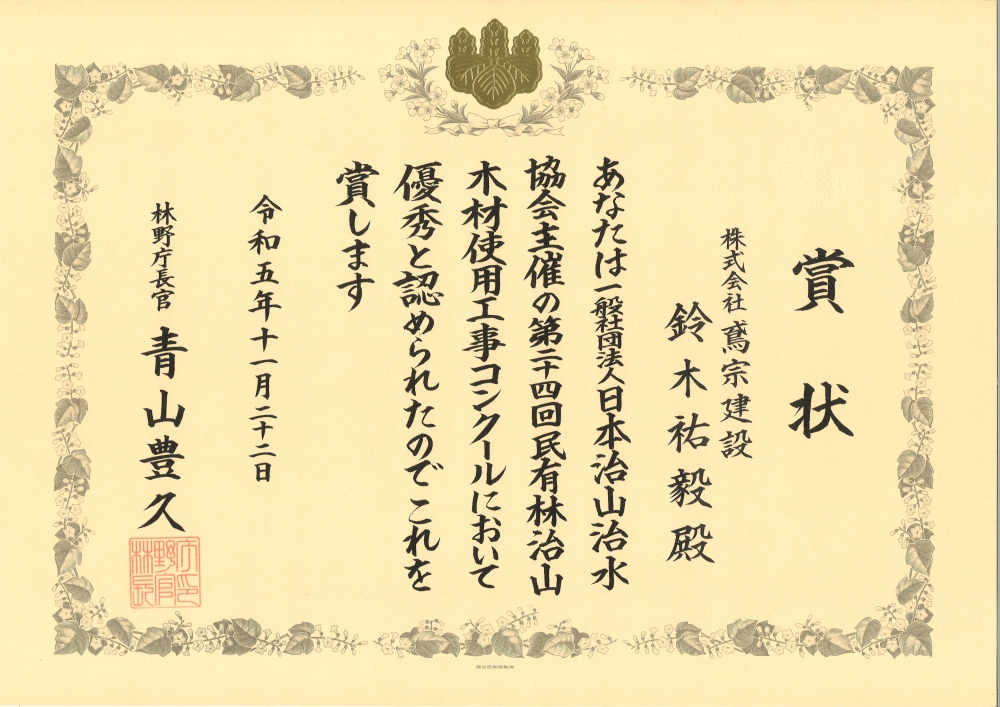 賞状
株式会社 鳶宗建設
鈴木祐毅殿
あなたは一般社団法人日本治山治水
協会主催の第二十四回民有林治山
木材使用工事コンクールにおいて
優秀と認められたのでこれを
賞します
令和五年十一月二十二日
林野庁長官 青山豊久